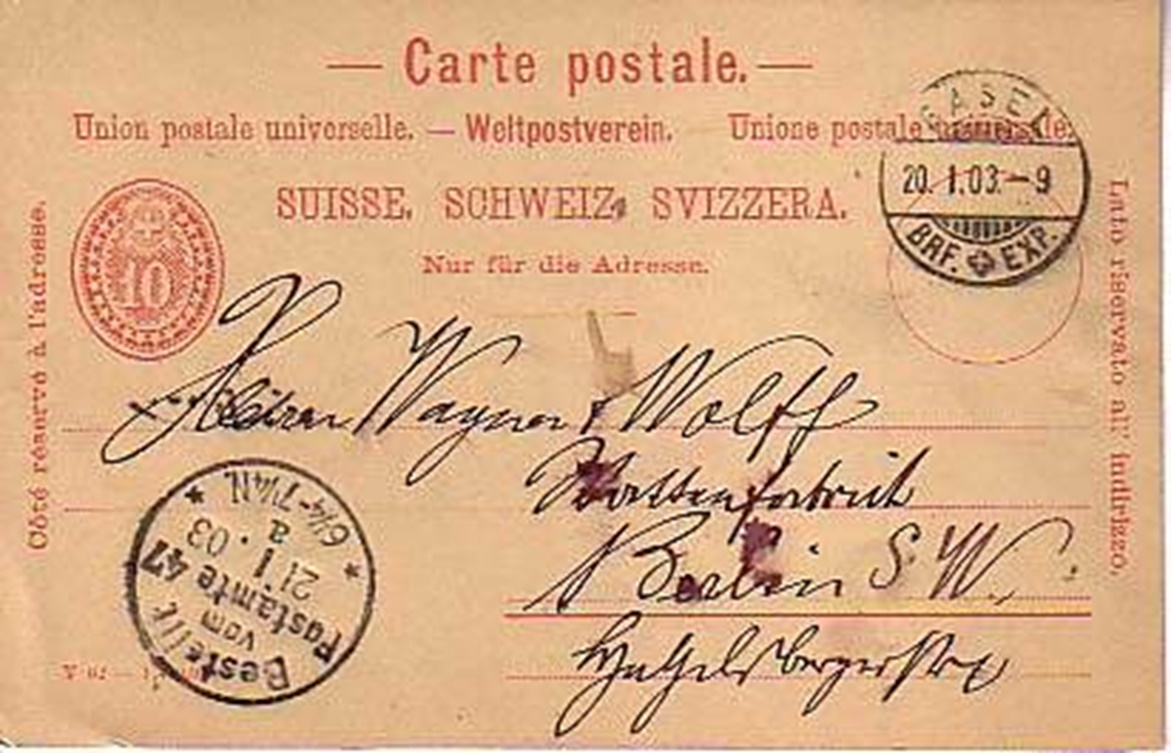 — Carte postale. —
Union postale universelle. — Weltpostverein. Unione postale universale.
SUISSE. SCHWEIZ. SVIZZERA.
Nur für die Adresse.
10
BASEL
20. 1.03.–9
BRF. EXP.
Côté réservé à l'adresse.
Lato riservato all' indirizzo.
Wagner & Wolff
Berlin S. W.
Bestellt
vom
Postamte 47
21 1 . 03
a
6¼-7¼N.